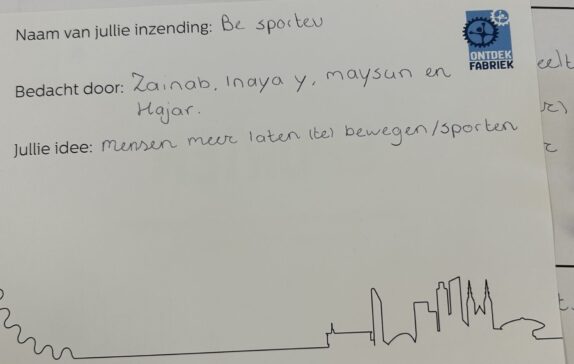 Naam van jullie inzending: Be sporteu
ONTDEK
FABRIEK
Bedacht door: Zainab, Inaya y, maysun en
Hajar.
Jullie idee: mensen meer laten (te) bewegen/sporten
eelt